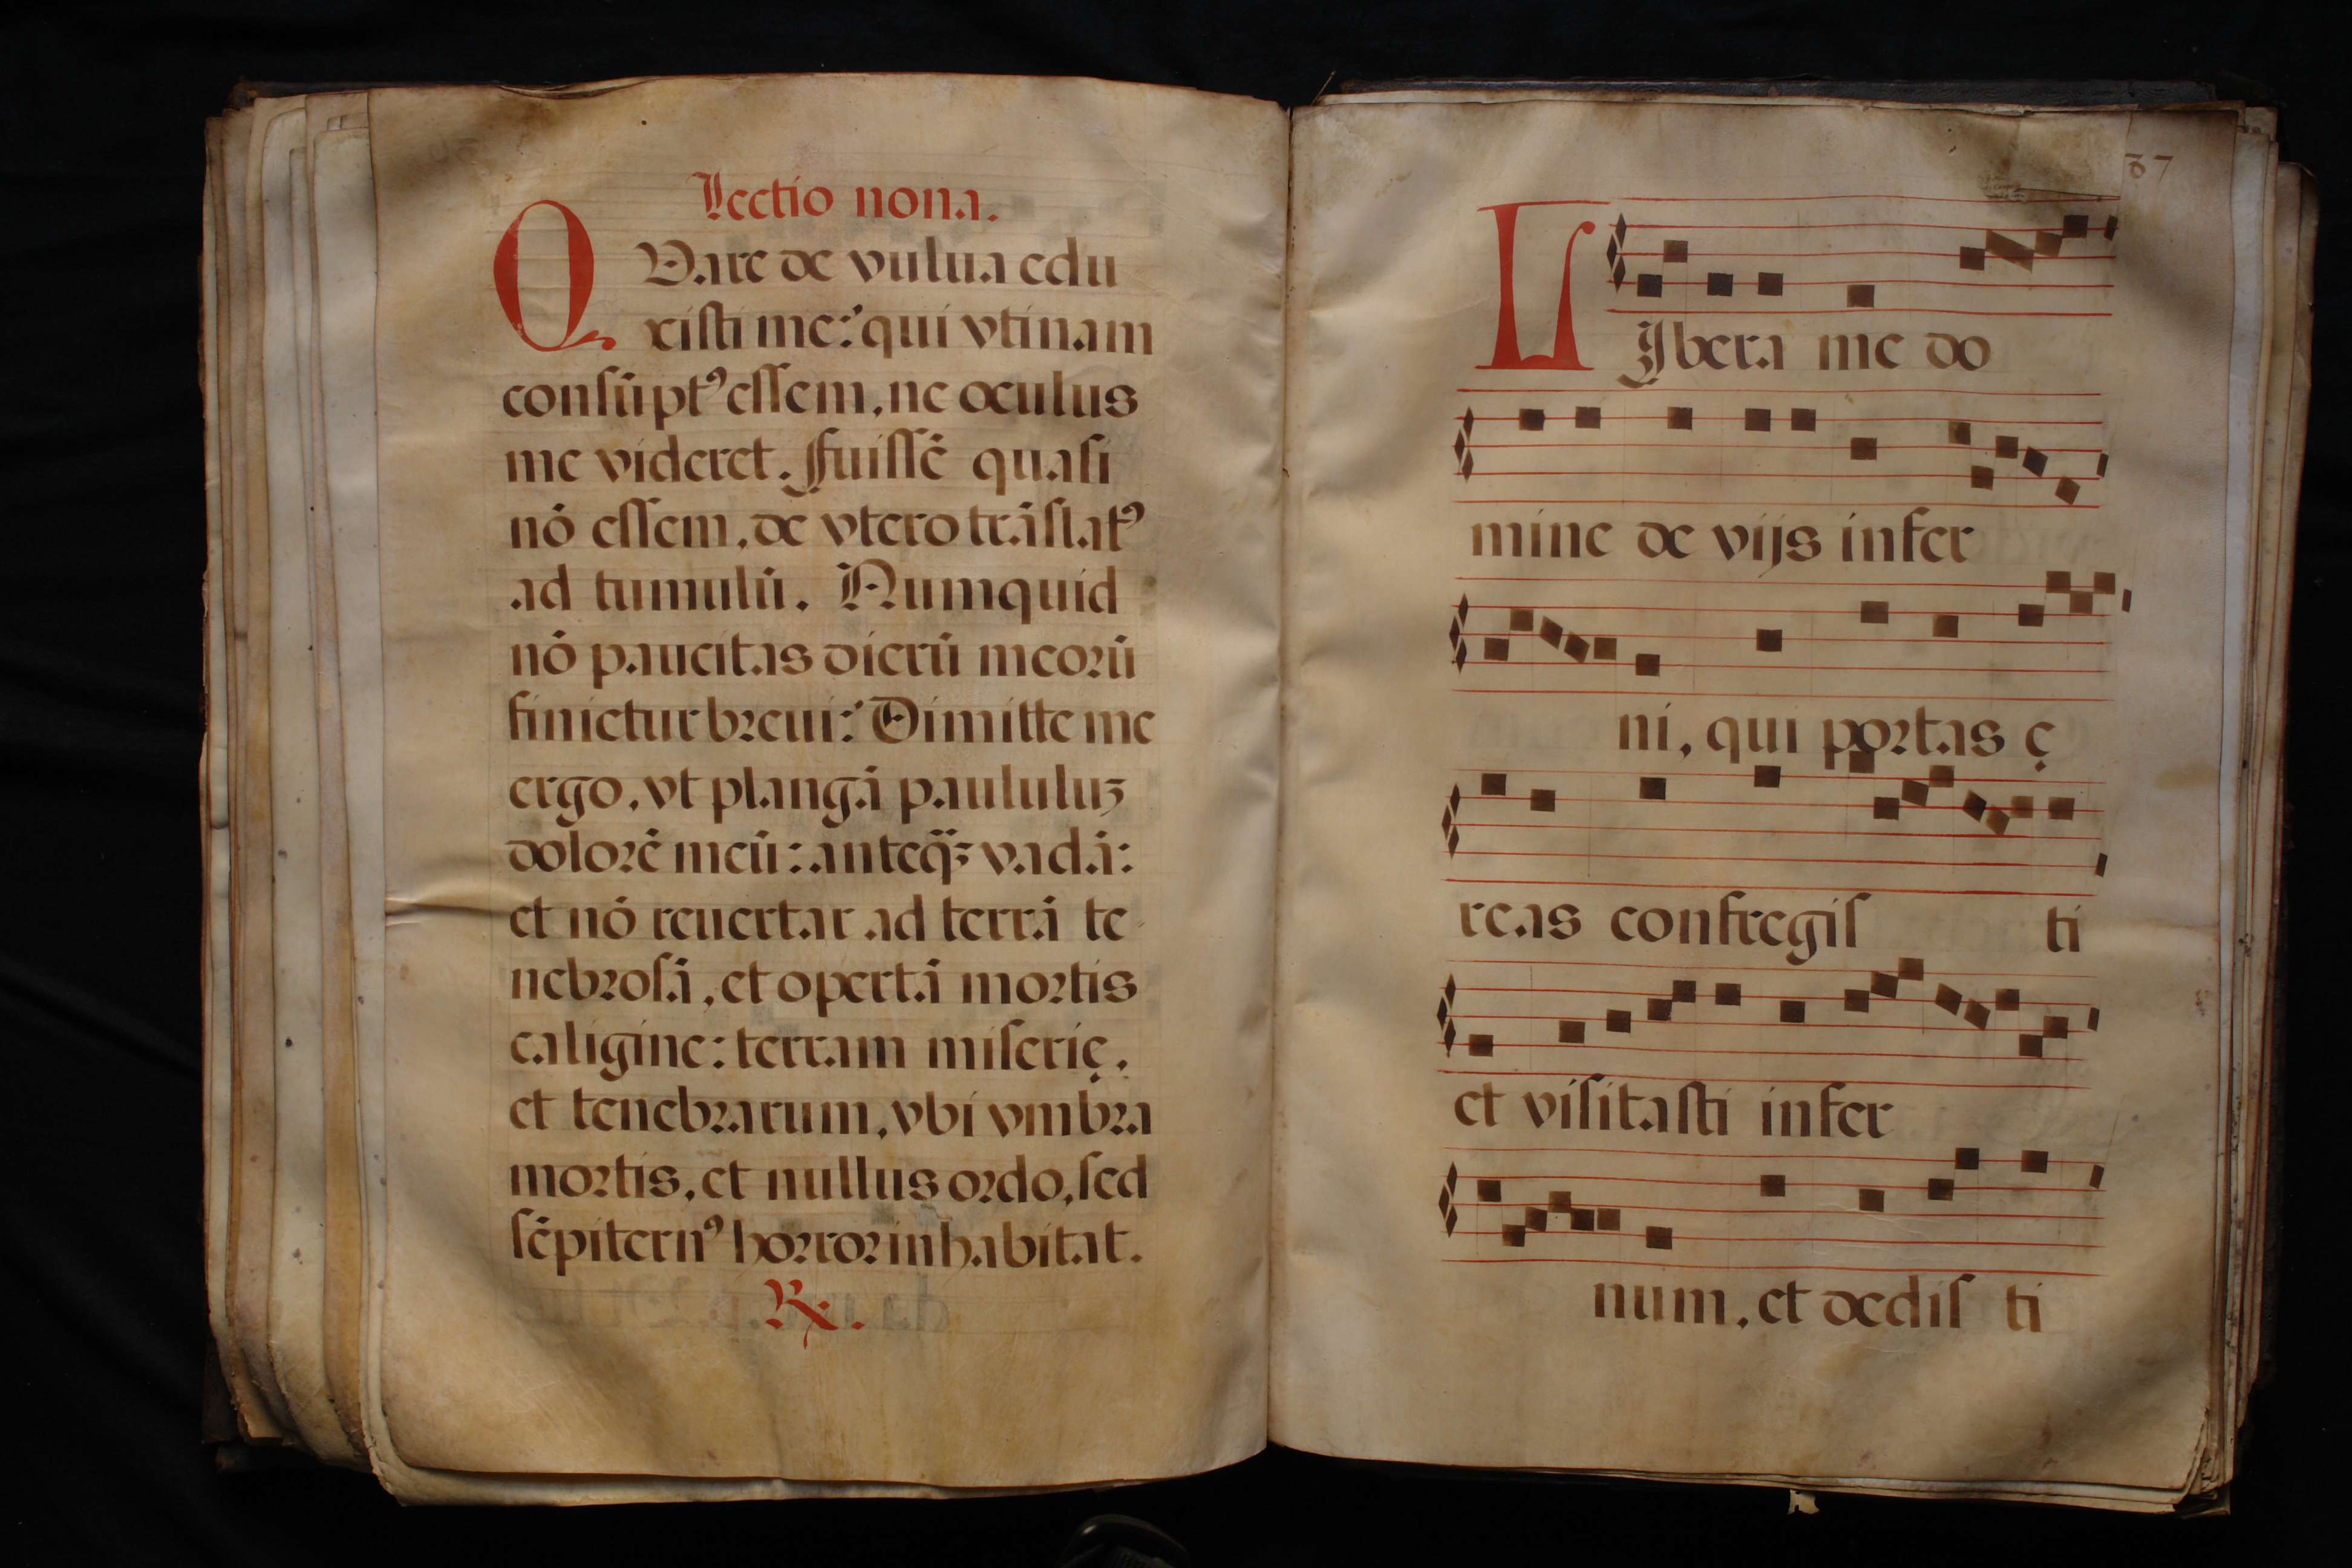 Lectio nona.
QVare de vulua edu
xisti me: qui vtinam
consūptꝰ essem, ne oculus
me videret. Fuissē quasi
nō essem, de vtero trāslatꝰ
ad tumulū. Numquid
nō paucitas dierū meorū
finietur breui: Dimitte me
ergo, vt plangā paululuꝫ
dolorē meū: anteq̄ꝫ vadā:
et nō reuertar ad terrā te-
nebrosā, et opertā mortis
caligine: terram miserię,
et tenebrarum, vbi vmbra
mortis, et nullus ordo, sed
sēpiternꝰ horror inhabitat.
℞.
37
LIbera me do
mine de vijs infer
ni, qui portas ę
reas confregis ti
et visitasti infer
num, et dedis ti